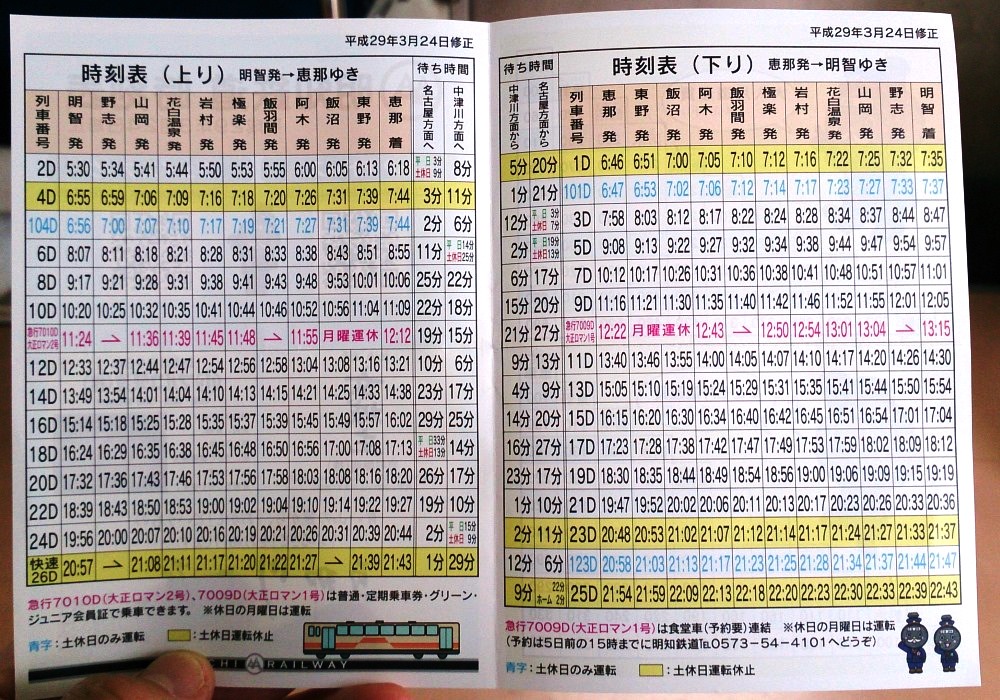 平成29年3月24日修正
時刻表（上り） 明智発→恵那ゆき 待ち時間
列車番号 明智発 野志発 山岡発 花白温泉発 岩村発 極楽発 飯羽間発 阿木発 飯沼発 東野発 恵那着 名古屋方面へ 中津川方面へ
2D 5:30 5:34 5:41 5:44 5:50 5:53 5:55 6:00 6:05 6:13 6:18 平日3分 土休日9分 8分
4D 6:55 6:59 7:06 7:09 7:16 7:18 7:20 7:26 7:31 7:39 7:44 3分 11分
104D 6:56 7:00 7:07 7:10 7:17 7:19 7:21 7:27 7:31 7:39 7:44 2分 6分
6D 8:07 8:11 8:18 8:21 8:28 8:31 8:33 8:38 8:43 8:51 8:55 11分 平日14分 土休日25分
8D 9:17 9:21 9:28 9:31 9:38 9:41 9:43 9:48 9:53 10:01 10:06 25分 22分
10D 10:20 10:25 10:32 10:35 10:41 10:44 10:46 10:52 10:56 11:04 11:09 22分 18分
急行7010D 大正ロマン2号 11:24 → 11:36 11:39 11:45 11:48 → 11:55 月曜運休 12:12 19分 15分
12D 12:33 12:37 12:44 12:47 12:54 12:56 12:58 13:04 13:08 13:16 13:21 10分 6分
14D 13:49 13:54 14:01 14:04 14:10 14:13 14:15 14:21 14:25 14:33 14:38 23分 17分
16D 15:14 15:18 15:25 15:28 15:35 15:37 15:39 15:45 15:49 15:57 16:02 29分 25分
18D 16:24 16:29 16:35 16:38 16:45 16:48 16:50 16:55 17:00 17:08 17:13 平日33分 土休日13分 14分
20D 17:32 17:36 17:43 17:46 17:53 17:56 17:58 18:03 18:08 18:16 18:20 26分 17分
22D 18:39 18:43 18:50 18:53 19:00 19:02 19:04 19:10 19:14 19:22 19:27 19分 10分
24D 19:56 20:00 20:07 20:10 20:16 20:19 20:21 20:26 20:31 20:39 20:44 2分 平日15分 土休日9分
快速26D 20:57 → 21:08 21:11 21:17 21:20 21:22 21:27 → 21:39 21:43 1分 29分
急行7010D（大正ロマン2号）、7009D（大正ロマン1号）は普通・定期乗車券・グリーン・
ジュニア会員証で乗車できます。 ※休日の月曜日は運転
青字：土休日のみ運転 ：土休日運転休止
RAILWAY
平成29年3月24日修正
待ち時間 時刻表（下り） 恵那発→明智ゆき
中津川方面から 名古屋方面から 列車番号 恵那発 東野発 飯沼発 阿木発 飯羽間発 極楽発 岩村発 花白温泉発 山岡発 野志発 明智着
5分 20分 1D 6:46 6:51 7:00 7:05 7:10 7:12 7:16 7:22 7:25 7:32 7:35
1分 21分 101D 6:47 6:53 7:02 7:06 7:12 7:14 7:17 7:23 7:27 7:33 7:37
12分 平日3分 土休日7分 3D 7:58 8:03 8:12 8:17 8:22 8:24 8:28 8:34 8:37 8:44 8:47
2分 平日19分 土休日13分 5D 9:08 9:13 9:22 9:27 9:32 9:34 9:38 9:44 9:47 9:54 9:57
6分 17分 7D 10:12 10:17 10:26 10:31 10:36 10:38 10:41 10:48 10:51 10:57 11:01
15分 20分 9D 11:16 11:21 11:30 11:35 11:40 11:42 11:46 11:52 11:55 12:01 12:05
21分 27分 急行7009D 大正ロマン1号 12:22 月曜運休 12:43 → 12:50 12:54 13:01 13:04 → 13:15
9分 13分 11D 13:40 13:46 13:55 14:00 14:05 14:07 14:10 14:17 14:20 14:26 14:30
4分 9分 13D 15:05 15:10 15:19 15:24 15:29 15:31 15:35 15:41 15:44 15:50 15:54
14分 20分 15D 16:15 16:20 16:30 16:34 16:40 16:42 16:45 16:51 16:54 17:01 17:04
16分 27分 17D 17:23 17:28 17:38 17:42 17:47 17:49 17:53 17:59 18:02 18:09 18:12
23分 17分 19D 18:30 18:35 18:44 18:49 18:54 18:56 19:00 19:06 19:09 19:15 19:19
1分 10分 21D 19:47 19:52 20:02 20:06 20:11 20:13 20:17 20:23 20:26 20:33 20:36
2分 11分 23D 20:48 20:53 21:02 21:07 21:12 21:14 21:17 21:24 21:27 21:33 21:37
12分 6分 123D 20:58 21:03 21:13 21:17 21:23 21:25 21:28 21:34 21:37 21:44 21:47
9分 22分 ホーム2分 25D 21:54 21:59 22:09 22:13 22:18 22:20 22:24 22:30 22:33 22:39 22:43
急行7009D（大正ロマン1号）は食堂車（予約要）連結 ※休日の月曜日は運転
（予約は5日前の15時までに明知鉄道TEL0573-54-4101へどうぞ）
青字：土休日のみ運転 ：土休日運転休止